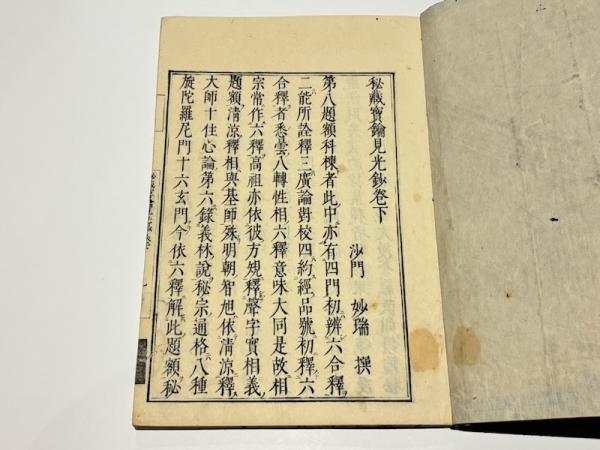 秘藏寳鑰見光鈔卷下
沙門 妙瑞 撰
第八題額科棟者此中亦有四門初辨六合釋
二能所詮釋三廣論對校四約經品號初釋六
合釋者悉曇八轉性相六釋意味大同是故相
宗常作六釋高祖亦依彼方規釋聲字實相義
題額清涼釋相與基師殊明朝智旭依清涼釋
大師十住心論第六錄義林說秘宗通格八種
旋陀羅尼門十六玄門今依六釋解此題額秘